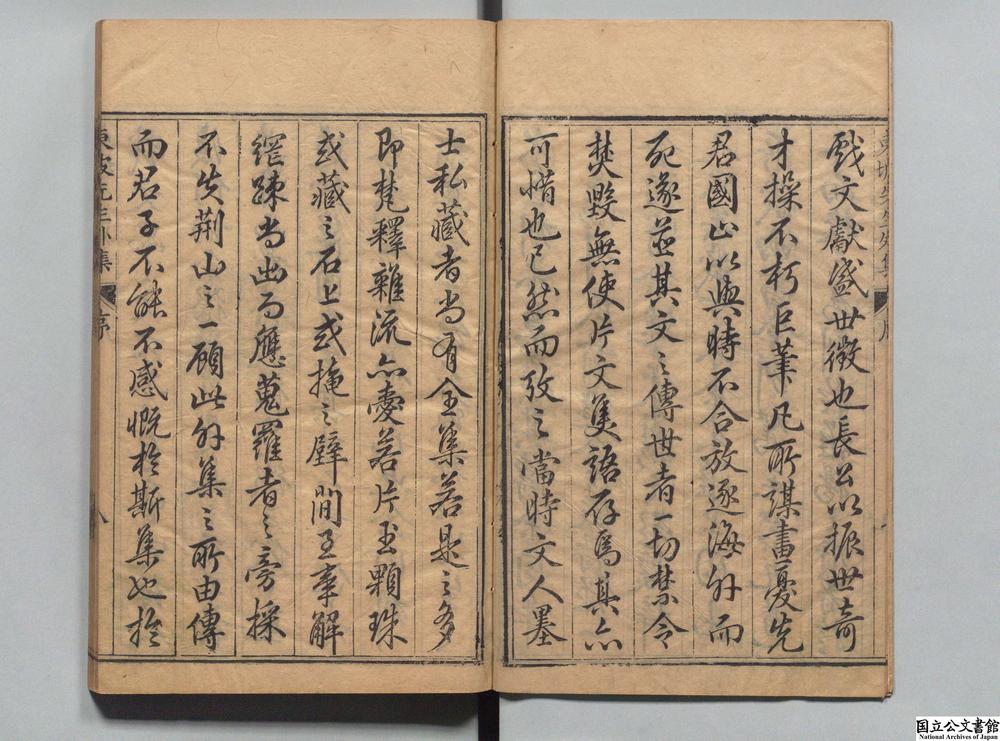 戲文獻盛世徵也長公以振世奇
才操不朽巨筆凡所謀畫憂先
君國止以與時不合放逐海外而
死遂並其文之傳世者一切禁令
焚毀無使片文隻語存焉其亦
可惜也已然而攷之當時文人墨
士私藏者尚有全集若是之多
即梵釋雜流亦愛若片玉顆珠
或藏之石上或掩之壁間至事解
網踈尚出而應蒐羅者之旁採
不失荆山之一顧此外集之所由傳
而君子不能不感慨於斯集也於
東坡先生外集
序
東坡先生外集
序
八
国立公文書館
National Archives of Japan